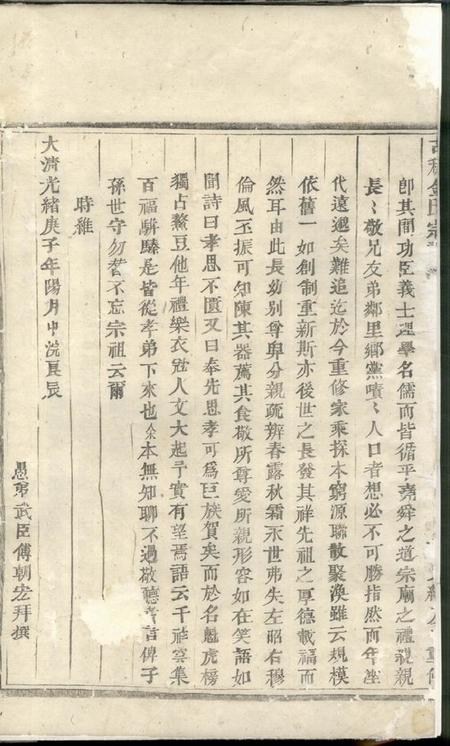 金氏宗
即其間功臣義士理學名儒而皆循平堯舜之道宗廟之禮親親
長〻敬兄友弟鄰里鄉黨嘖〻人口者想必不可勝指然而年湮
代遠邈矣難追迄於今重修家乘探本窮源聯散聚渙雖云規模
依舊一如創制重新斯亦後世之長發其祥先祖之厚德載福而
然耳由此長幼別尊卑分親疏辨春露秋霜永世弗失左昭右穆
倫風丕振可知陳其器薦其食敬所尊愛所親形容如在笑語如
聞詩曰孝思不匱又曰奉先思孝可為巨族賀矣而於名魁虎榜
獨占鰲豆他年禮樂衣冠人文大起予實有望焉語云千祥雲集
百福駢臻是皆從孝弟下來也余本無知聊不過敬聽善言俾子
孫世守勿替不忘宗祖云爾
時維
大清光緒庚子年陽月中浣良辰
愚弟武臣傅朝宏拜撰